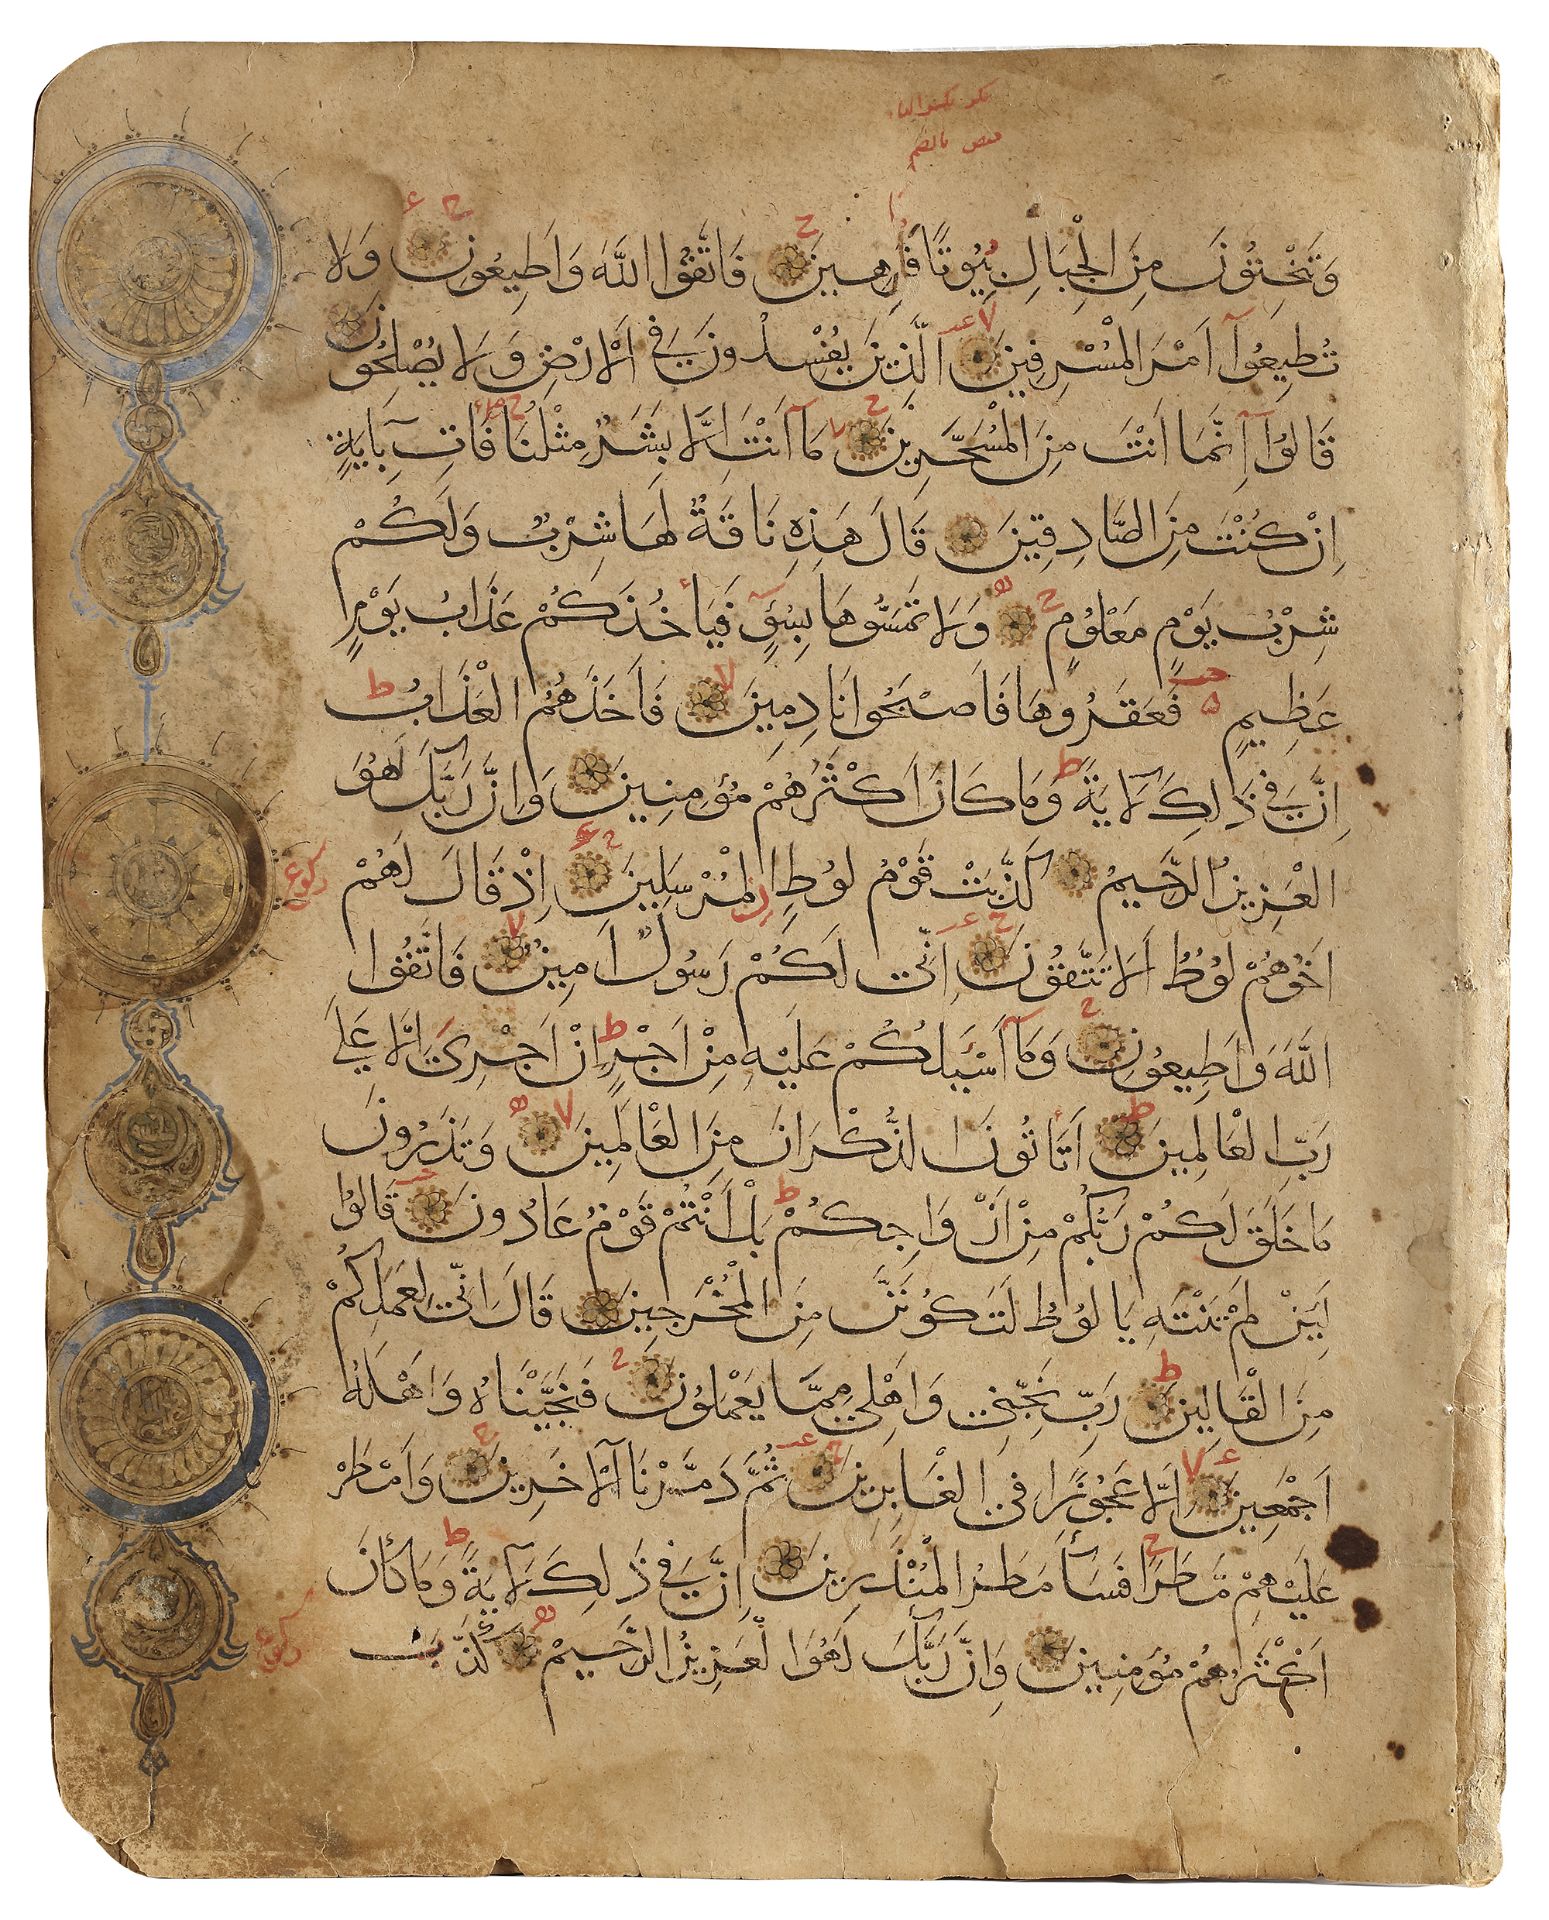 وَتَنْحِتُونَ مِنَ الْجِبَالِ بُيُوتًا فَارِهِينَ فَاتَّقُوا اللَّهَ وَاَطِيعُونِ وَلَا
تُطِيعُوآ اَمْرَ الْمُسْرِفِينَ اَلَّذِينَ يُفْسِدُونَ فِي الْاَرْضِ وَلَا يُصْلِحُونَ
قَالُوآ اِنَّمَا اَنْتَ مِنَ الْمُسَحَّرِينَ مَآ اَنْتَ اِلَّا بَشَرٌ مِثْلُنَا فَاتِ بِاٰيَةٍ
اِنْ كُنْتَ مِنَ الصَّادِقِينَ قَالَ هٰذِهِ نَاقَةٌ لَهَا شِرْبٌ وَلَكُمْ
شِرْبُ يَوْمٍ مَعْلُومٍ وَلَا تَمَسُّوهَا بِسُوٓءٍ فَيَأْخُذَكُمْ عَذَابُ يَوْمٍ
عَظِيمٍ فَعَقَرُوهَا فَاَصْبَحُوا نَادِمِينَ فَاَخَذَهُمُ الْعَذَابُ ط
اِنَّ فِي ذٰلِكَ لَاٰيَةً ط وَمَا كَانَ اَكْثَرُهُمْ مُؤْمِنِينَ وَاِنَّ رَبَّكَ لَهُوَ
الْعَزِيزُ الرَّحِيمُ كَذَّبَتْ قَوْمُ لُوطٍ الْمُرْسَلِينَ اِذْ قَالَ لَهُمْ ركوع
اَخُوهُمْ لُوطٌ اَلَا تَتَّقُونَ اِنِّي لَكُمْ رَسُولٌ اَمِينٌ فَاتَّقُوا
اللَّهَ وَاَطِيعُونِ وَمَآ اَسْـَٔلُكُمْ عَلَيْهِ مِنْ اَجْرٍ ط اِنْ اَجْرِيَ اِلَّا عَلٰي
رَبِّ الْعَالَمِينَ ط اَتَأْتُونَ الذُّكْرَانَ مِنَ الْعَالَمِينَ وَتَذَرُونَ
مَا خَلَقَ لَكُمْ رَبُّكُمْ مِنْ اَزْوَاجِكُمْ ط بَلْ اَنْتُمْ قَوْمٌ عَادُونَ قَالُوا
لَئِنْ لَمْ تَنْتَهِ يَا لُوطُ لَتَكُونَنَّ مِنَ الْمُخْرَجِينَ قَالَ اِنِّي لِعَمَلِكُمْ
مِنَ الْقَالِينَ ط رَبِّ نَجِّنِي وَاَهْلِي مِمَّا يَعْمَلُونَ فَنَجَّيْنَاهُ وَاَهْلَهُ
اَجْمَعِينَ اِلَّا عَجُوزًا فِي الْغَابِرِينَ ثُمَّ دَمَّرْنَا الْاٰخَرِينَ وَاَمْطَرْنَا
عَلَيْهِمْ مَطَرًا فَسَآءَ مَطَرُ الْمُنْذَرِينَ اِنَّ فِي ذٰلِكَ لَاٰيَةً ط وَمَا كَانَ
اَكْثَرُهُمْ مُؤْمِنِينَ وَاِنَّ رَبَّكَ لَهُوَ الْعَزِيزُ الرَّحِيمُ كَذَّبَ ركوع